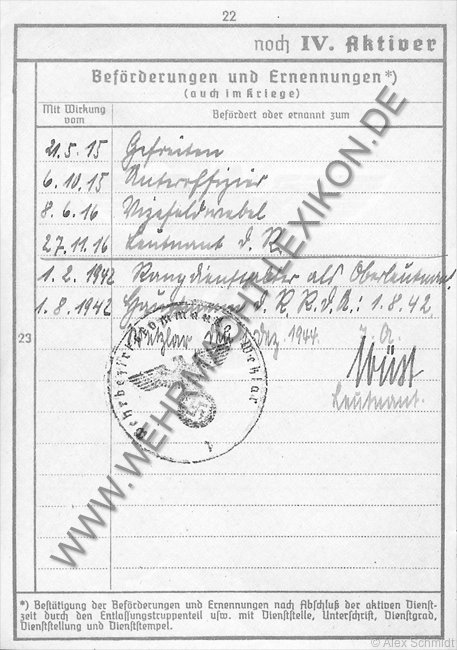 22
noch IV. Aktiver
Beförderungen und Ernennungen*)
(auch im Kriege)
Mit Wirkung vom
Befördert oder ernannt zum
21.5.15 Gefreiten
6.10.15 Unteroffizier
8.6.16 Vizefeldwebel
27.11.16 Leutnant d. R.
1.2.1942 Rangdienstalter als Oberleutnant
1.8.1942 Hauptmann d. R. R.D.A.: 1.8.42.
23
Wetzlar, den Dez. 1944.
J. A.
Wüst
Leutnant.
Wehrbezirkskommando Wetzlar
WWW.WEHRMACHT-LEXIKON.DE
*) Bestätigung der Beförderungen und Ernennungen nach Abschluß der aktiven Dienst-
zeit durch den Entlassungstruppenteil usw. mit Dienststelle, Unterschrift, Dienstgrad,
Dienststellung und Dienststempel.
© Alex Schmidt